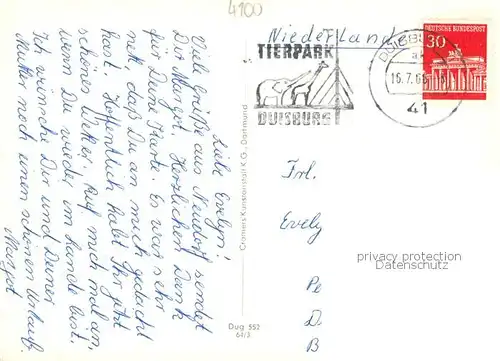 4100
Niederlande
TIERPARK
DUISBURG
DUISBURG
16.7.68
41
DEUTSCHE BUNDESPOST
30
Liebe Evelyn!
Viele Grüße aus Neudorf sendet
Dir Margot. Herzlichen Dank
für Deine Karte. Es war sehr
nett, daß Du an mich gedacht
hast. Hoffentlich habt Ihr jetzt
schönes Wetter. Ruf mich mal an,
wenn Du wieder im Lande bist.
Ich wünsche Dir und Deiner
Mutter noch einen schönen Urlaub.
Margot
Cramers Kunstanstalt K.G., Dortmund
Dug 552
64/3
Frl.
Evely
Pe
D.
B
privacy protection
Datenschutz